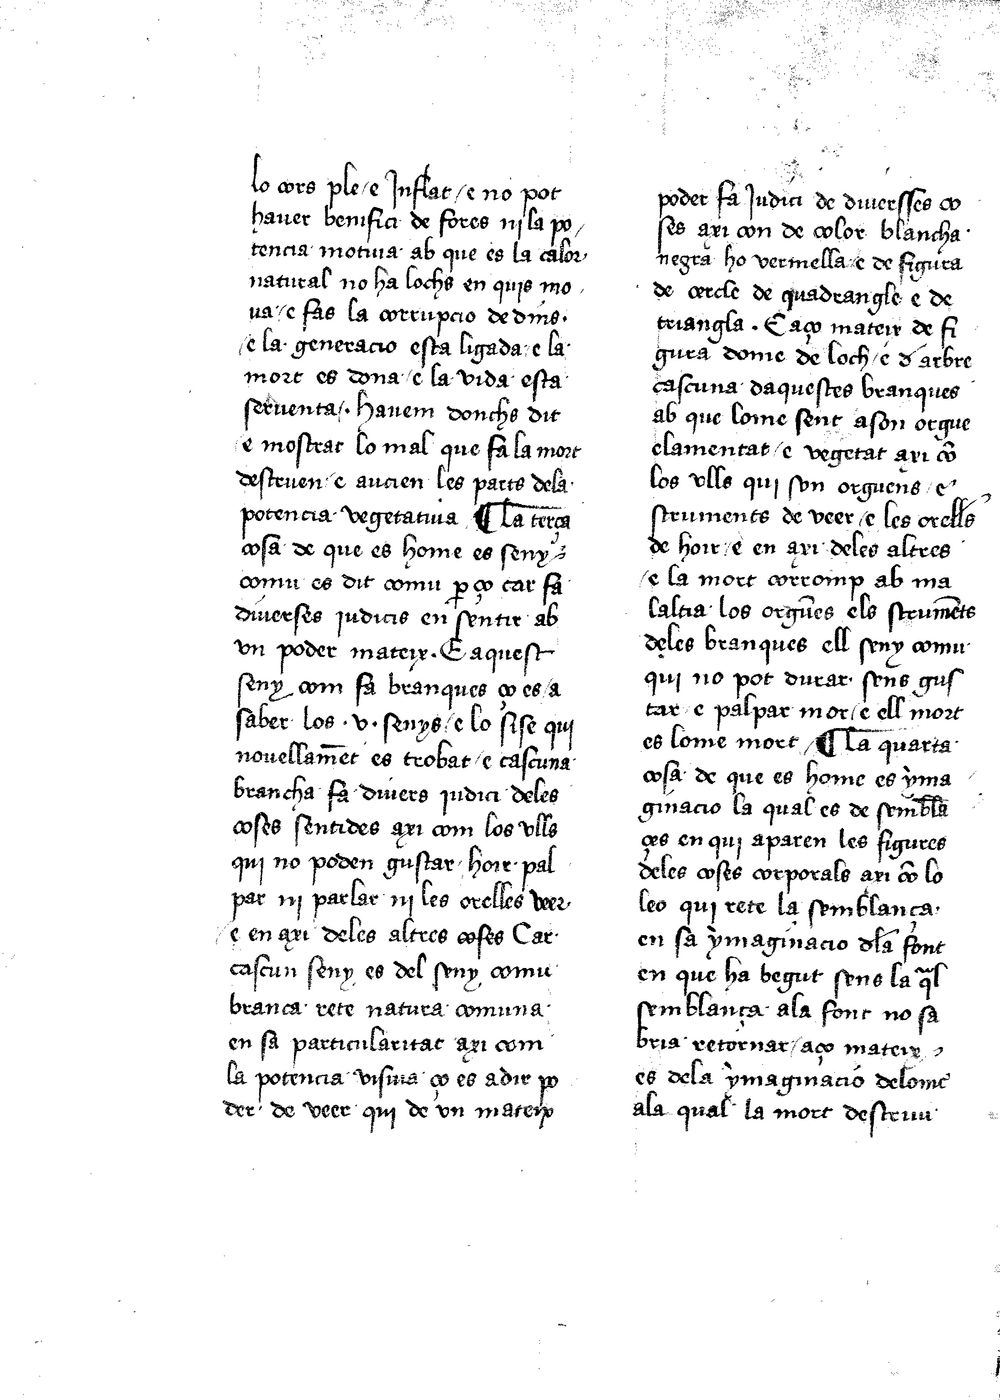 lo cors ple / e Inflat / e no pot
hauer benifici de fores ni la po /
tencia motiua ab que es la calor
natural no ha lochs en quis mo
ua / e fas la corrupcio de dīns.
/ e la generacio esta ligada e la
mort es dona / e la vida esta
seruenta /. Hauem donchs dit
e mostrat lo mal que fa la mort
destruen / e aucien les parts dela
potencia vegetatiua ¶ La terça
cosa de que es home es seny
comu es dit comu ꝑ ço car fa
diuerses iudicis en sentir ab
vn poder mateix. E aquest
seny com fa branques ço es / a
saber los .v. senys / e lo sise qui
nouellamēt es trobat / e cascuna
brancha fa diuers iudici deles
coses sentides axi com los vlls
qui no poden gustar / hoir pal
par ni parlar ni les orelles veer
/ e en axi deles altres coses Car
cascun seny es del seny comu
branca rete natura comuna
en sa particularitat axi com
la potencia visiua ço es a dir po
der de veer qui de vn mateix
poder fa Judici de diuersses co
ses axi con de color blancha
negra ho vermella / e de figura
de cercle de quadrangle e de
triangla. E aço mateix de fi
gura dome de loch / e d arbre
cascuna daquestes branques
ab que lome sent a son orgue
elamentat / e vegetat axi cō
los vlls qui son orguens / e
struments de veer / e les orells
de hoir / e en axi deles altres
/ e la mort corromp ab ma
laltia los orgūes els strumēts
deles branques ell seny comu
qui no pot durar sens gus
tar e palpar mor / e ell mort
es lome mort / ¶ La quarta
cosa de que es home es ẏma
ginacio la qual es de sembla
çes en qui aparen les figures
deles coses corporals axi cō lo
leo qui rete la semblança
en sa ẏmaginacio dla font
en que ha begut sens la q̄l
semblança ala font no sa
bria retornar / aço mateix
es dela ẏmaginacio delome
ala qual la mort destruu